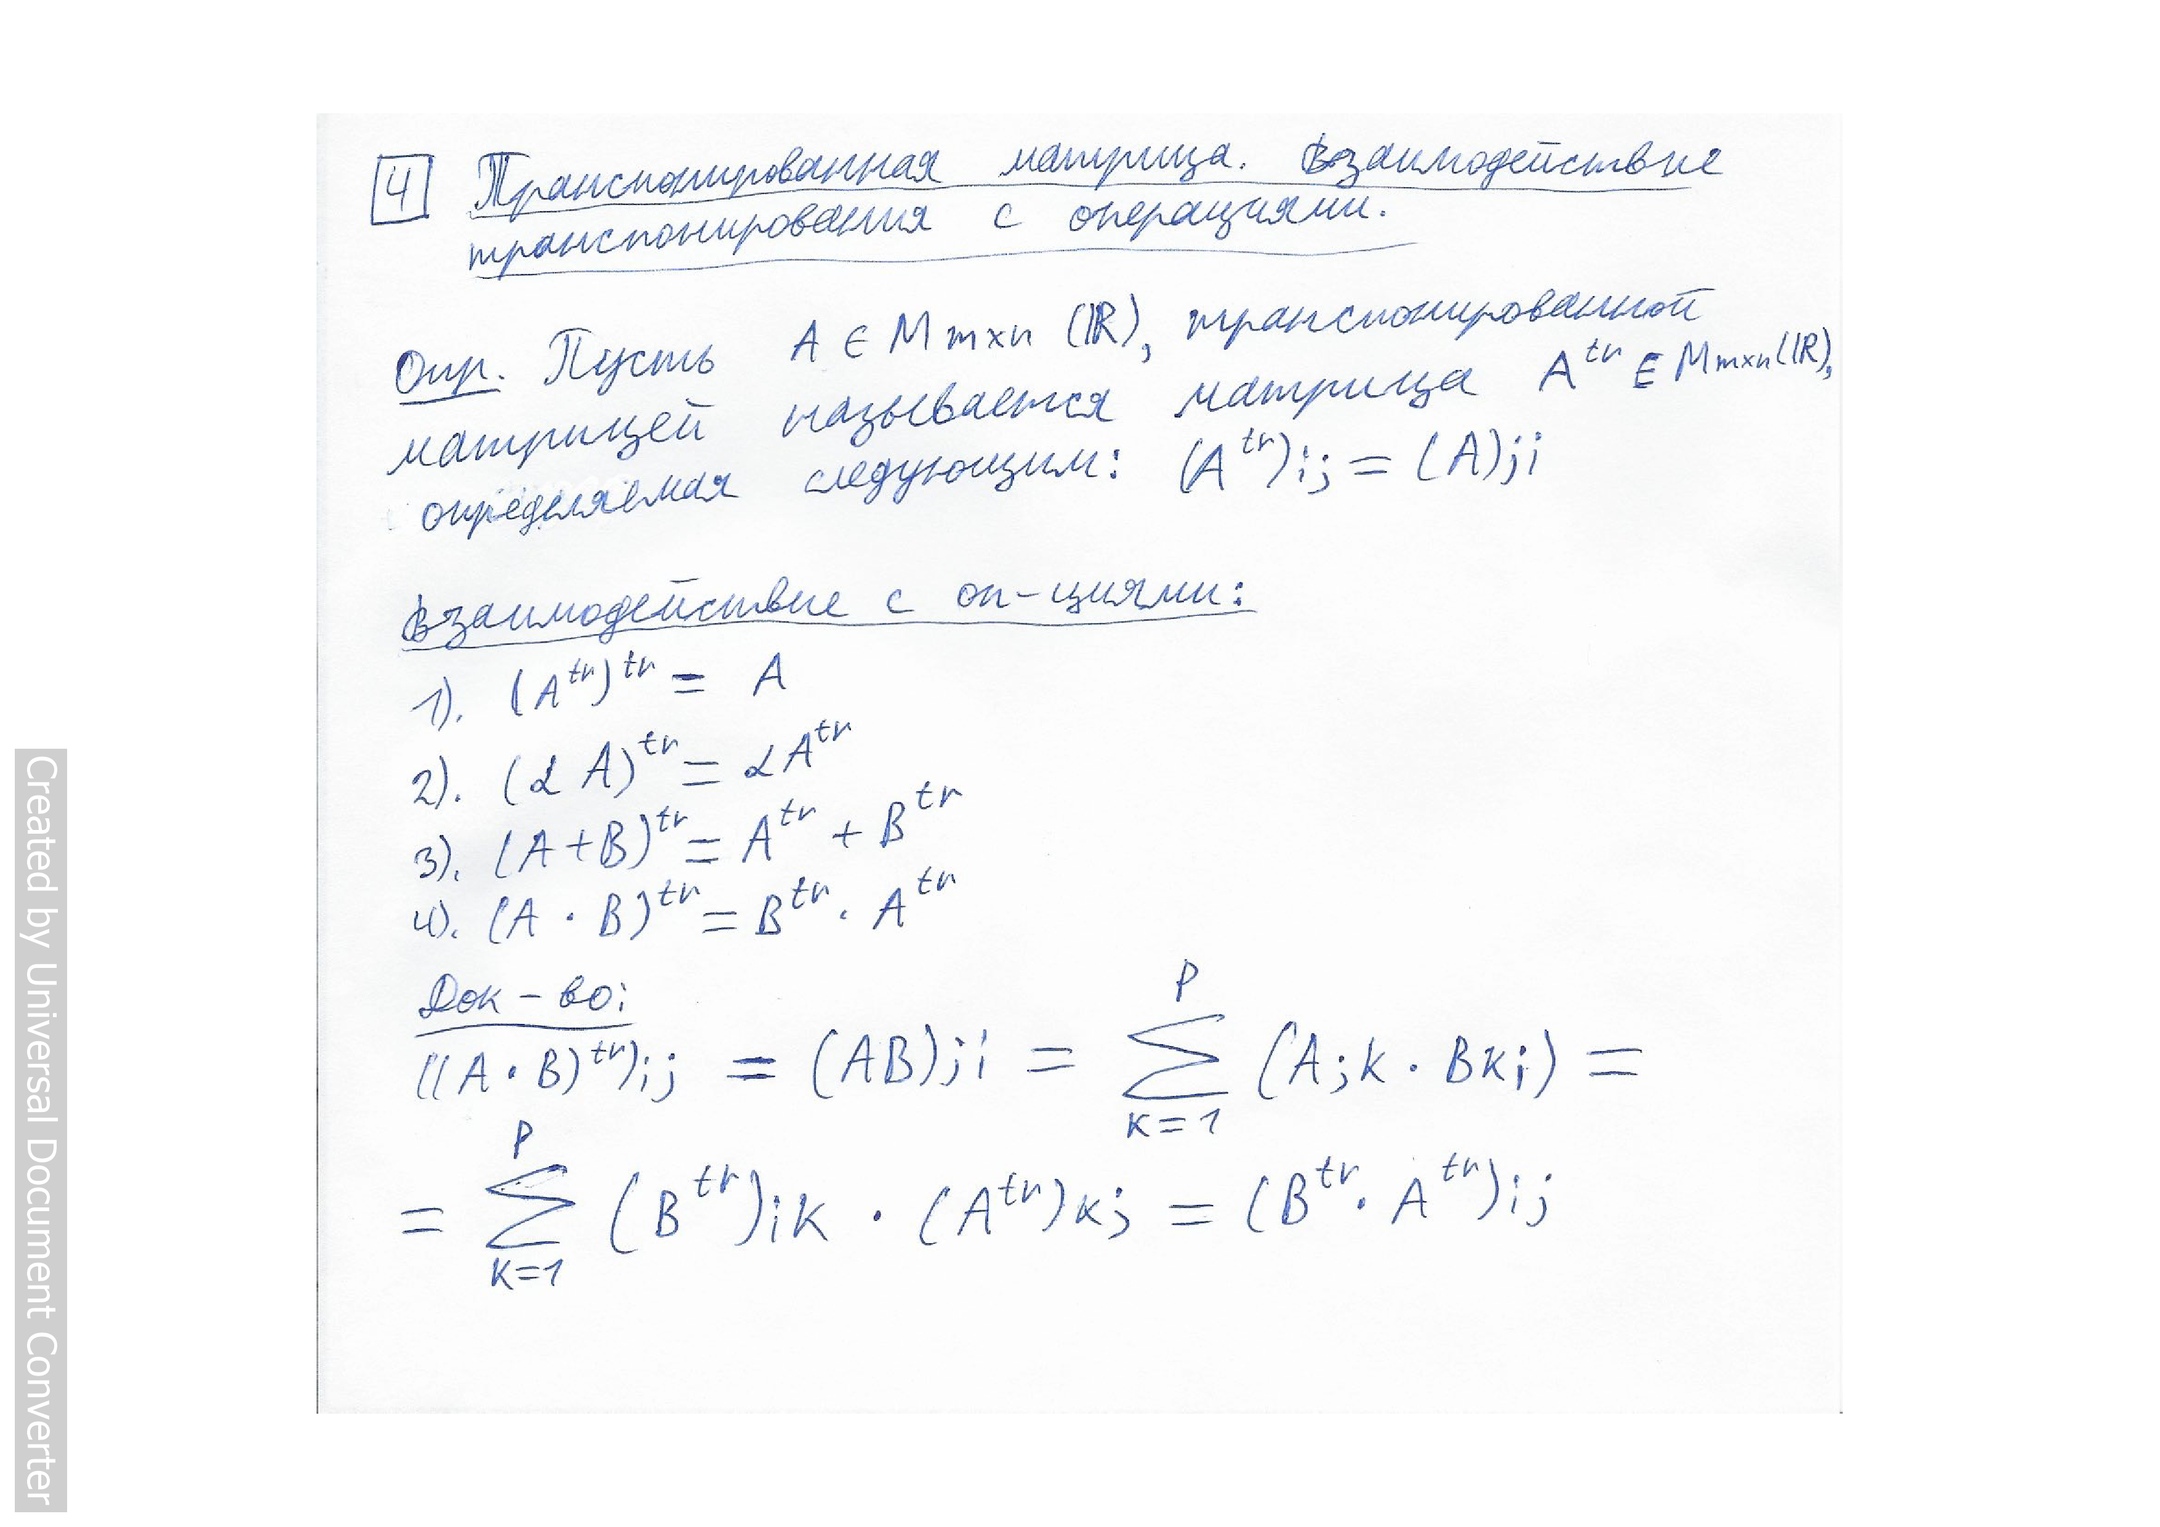 4 Транспонированная матрица. Взаимодействие
транспонирования с операциями.
Опр. Пусть A ∈ M m×n (ℝ), транспонированной
матрицей называется матрица A^tr ∈ M m×n (ℝ),
определяемая следующим: (A^tr)ij = (A)ji
Взаимодействие с оп-циями:
1). (A^tr)^tr = A
2). (α A)^tr = α A^tr
3). (A+B)^tr = A^tr + B^tr
4). (A · B)^tr = B^tr · A^tr
Док-во:
((A · B)^tr)ij = (AB)ji = ∑_{k=1}^{P} (Ajk · Bki) =
= ∑_{k=1}^{P} (B^tr)ik · (A^tr)kj = (B^tr · A^tr)ij
Created by Universal Document Converter